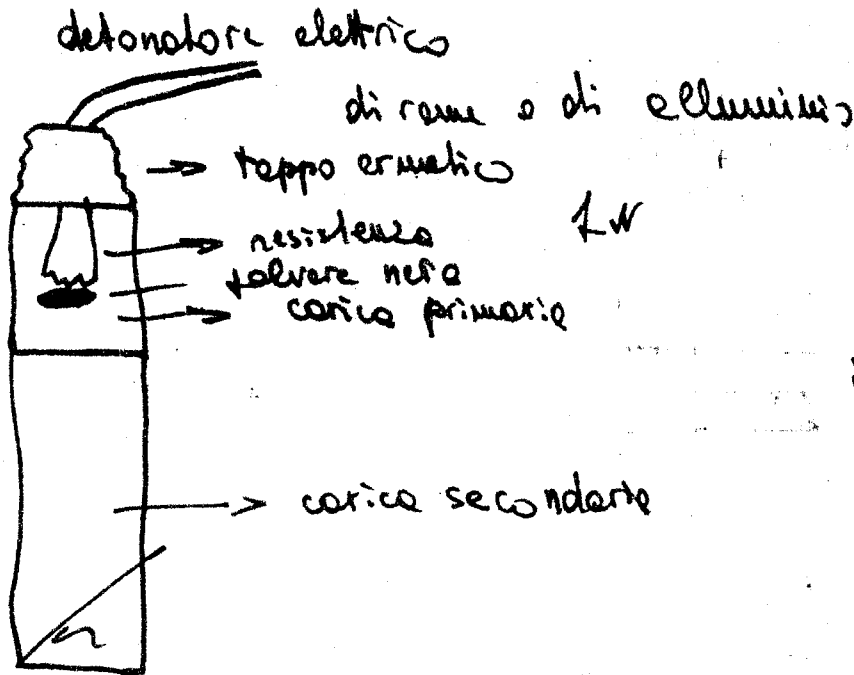 detonatore elettrico
di rame o di alluminio
tappo ermetico
resistenza
polvere nera
carica primaria
carica secondaria